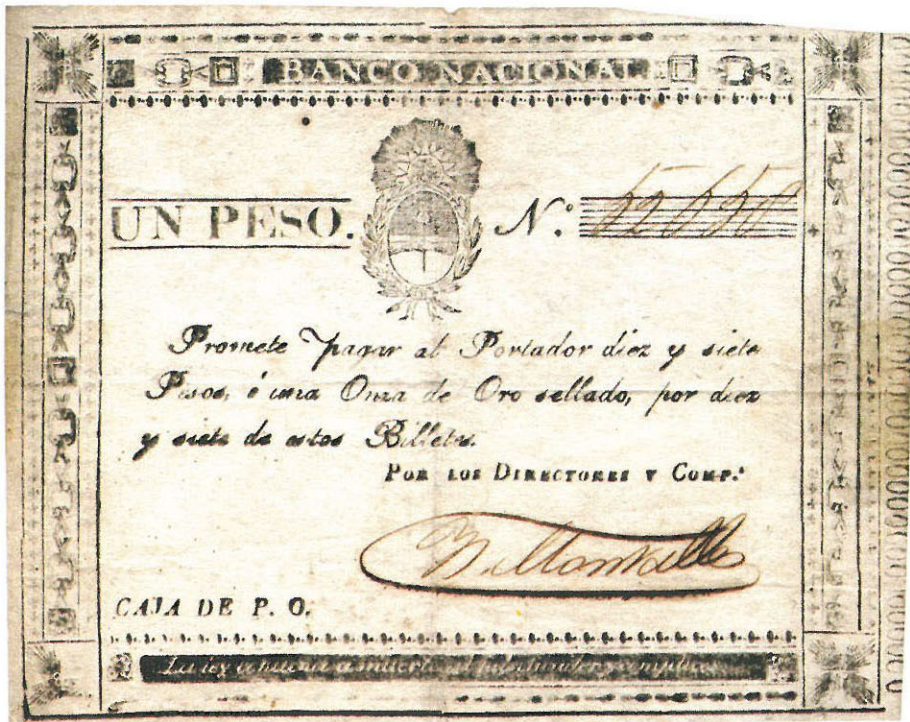 BANCO NACIONAL
UN PESO. N.º 52650
Promete pagar al Portador diez y siete
Pesos, ó una Onza de Oro sellado, por diez
y siete de estos Billetes.
POR LOS DIRECTORES Y COMP.ª
CAJA DE P. O.
La ley condena a muerte al falsificador y complices